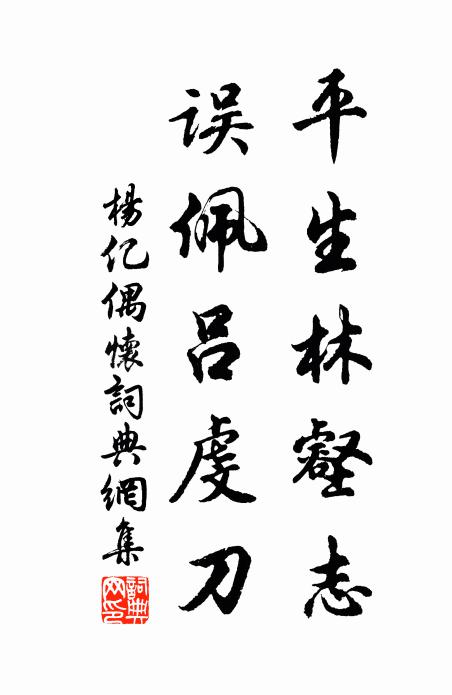 平生林壑志
误佩吕虔刀
楊亿偶懷詞典網集
詞典网印